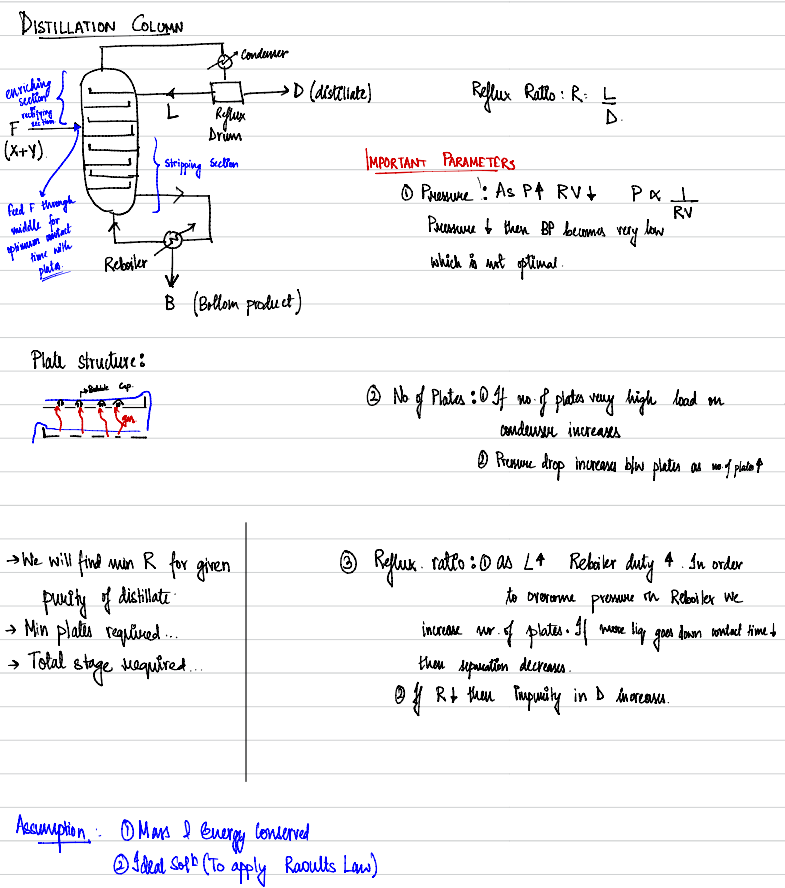 DISTILLATION COLUMN
Condenser
enriching
section
or
rectifying
section
L
Reflux
Drum
D (distillate)
F
(X+Y)
Stripping Section
feed F through
middle for
optimum contact
time with
plates.
Reboiler
B (Bottom product)
Reflux Ratio: R: L
D.
IMPORTANT PARAMETERS
① Pressure: As P↑ RV↓ P ∝ 1
RV
Pressure ↓ then BP becomes very low
which is not optimal.
Plate structure:
Bubble Cap
gas
② No of Plates: ① If no. of plates very high load on
condenser increases
② Pressure drop increases b/w plates as no. of plates ↑
→ We will find min R for given
purity of distillate.
→ Min plates required...
→ Total stage required...
③ Reflux ratio: ① as L↑ Reboiler duty ↑. In order
to overcome pressure on Reboiler we
increase no. of plates. If more liq goes down contact time ↓
then separation decreases.
② If R↓ then Impurity in D increases.
Assumption: ① Mass & Energy Conserved
② Ideal Solⁿ (To apply Raoults Law)